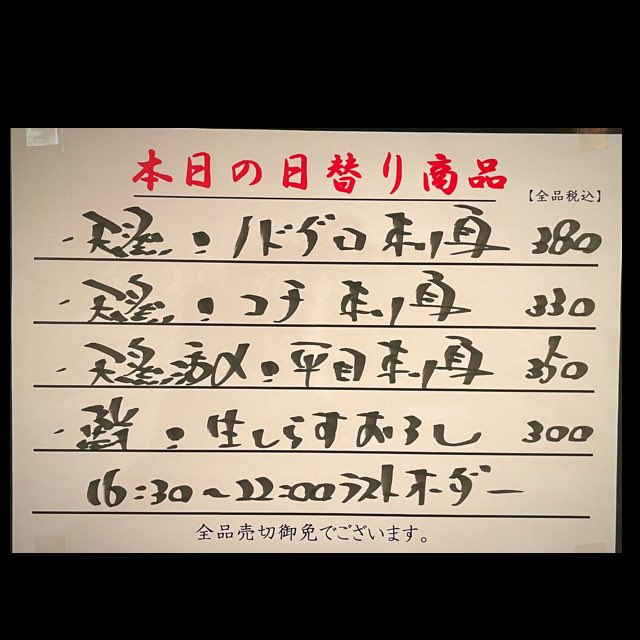 本日の日替り商品
【全品税込】
・天然：ノドグロ刺身 380
・天然：コチ刺身 330
・天然活〆：平目刺身 350
：生しらすおろし 300
16:30〜22:00ラストオーダー
全品売切御免でございます。